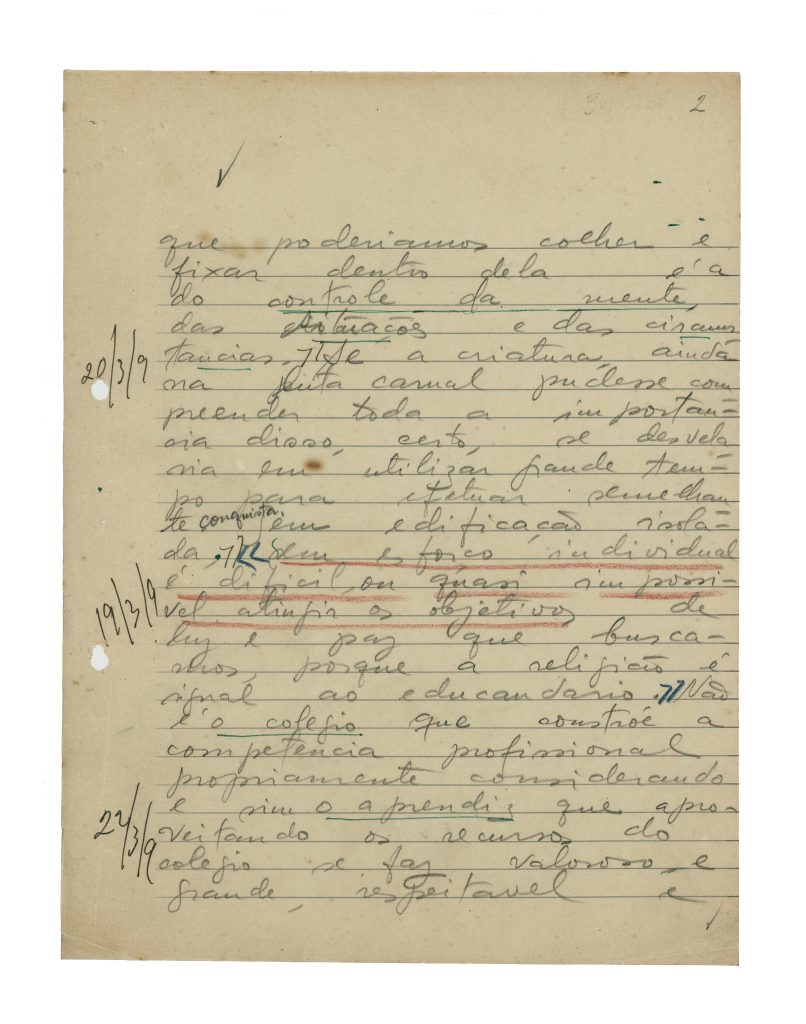 2
que poderiamos colher e
fixar dentro dela é a
do controle da mente,
das situações e das circuns
tancias. Se a criatura, ainda
20/3/9
na luta carnal pudesse com
preender toda a importan-
cia disso, certo, se desvela
ria em utilizar grande tem-
po para efetuar semelhan
te conquista, em edificação isola-
da, sem esforço individual
é dificil, ou quasi impossi-
19/3/9
vel atingir os objetivos de
luz e paz que busca-
mos, porque a religião é
igual ao educandario. Não
é o colegio que constróe a
competencia profissional
propriamente considerando
e sim o aprendiz que apro-
22/3/9
veitando os recursos do
colegio se faz valoroso e
grande, respeitavel e